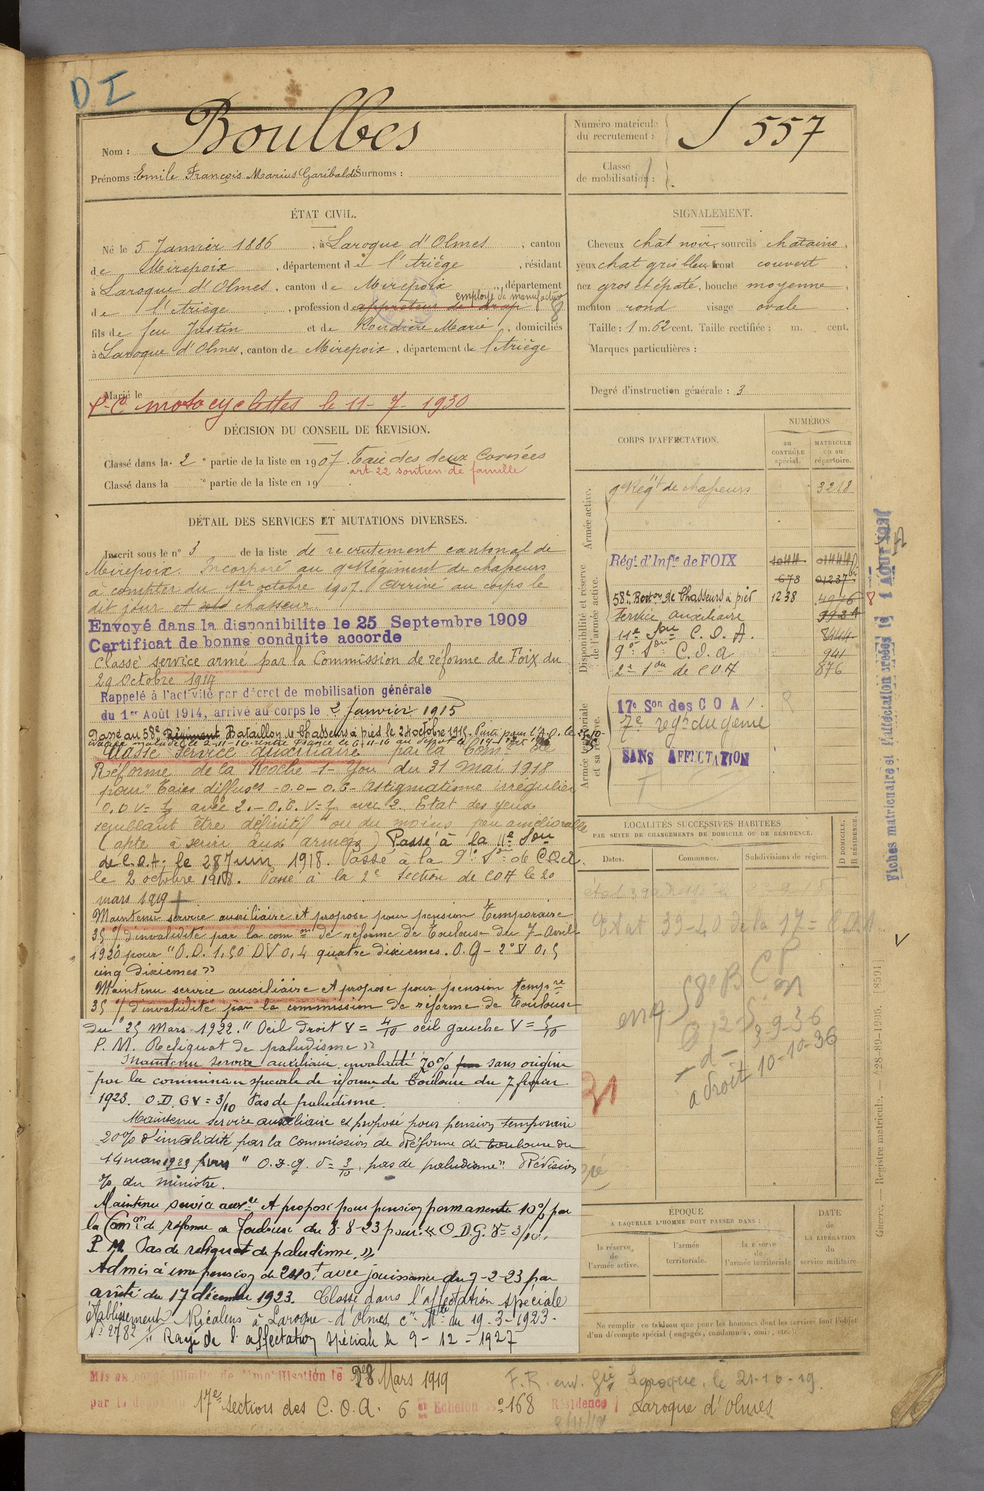 DI
Nom : Boulbes
Prénoms : Emile François Marius Garibaldi Surnoms :
Numéro matricule du recrutement : 557
Classe de mobilisation :
ÉTAT CIVIL.
Né le 5 Janvier 1886, à Laroque d'Olmes, canton
de Mirepoix, département de l'Ariège, résidant
à Laroque d'Olmes, canton de Mirepoix, département
de l'Ariège, profession d'appreteur de drap employé de manufacture
fils de feu Justin et de Roudière Marie, domiciliés
à Laroque d'Olmes, canton de Mirepoix, département de l'Ariège
Marié le
motocyclettes le 11-7-1930
SIGNALEMENT.
Cheveux chat noir, sourcils chatains,
yeux chat gris bleu, front couvert,
nez gros et épaté, bouche moyenne,
menton rond visage ovale.
Taille : 1 m. 62 cent. Taille rectifiée : m. cent.
Marques particulières :
Degré d'instruction générale : 3
DÉCISION DU CONSEIL DE REVISION.
Classé dans la 2e partie de la liste en 1907. Taie des deux Cornées
art 22 soutien de famille
Classé dans la e partie de la liste en 19
CORPS D'AFFECTATION.
NUMÉROS
au CONTRÔLE spécial.
MATRICULE ou au répertoire.
Armée active.
9e Régt de chasseurs 3218
Disponibilité et réserve de l'armée active.
Régt. d'Infie de FOIX 1044
673 01237
58e Baton de Chasseurs à pied 1238
Service auxiliaire
11e Son C.O.A. 8444
9e Son C.O.A 941
2e Son de COA 876
Armée territoriale et sa réserve.
17e Son des COA
7e régt du génie
SANS AFFECTATION
DÉTAIL DES SERVICES ET MUTATIONS DIVERSES.
Inscrit sous le no 3 de la liste de recrutement cantonal de
Mirepoix. Incorporé au 9e Régiment de chasseurs
à compter du 1er octobre 1907. Arrivé au corps le
dit jour et chasseur
Envoyé dans la disponibilité le 25 Septembre 1909
Certificat de bonne conduite accordé
Classé service armé par la Commission de réforme de Foix du
29 Octobre 1914
Rappelé à l'activité par décret de mobilisation générale
du 1er Août 1914, arrivé au corps le 2 Janvier 1915
Passé au 58e Régiment Bataillon de Chasseurs à pied le 2 octobre 1915.
Classé service auxiliaire par la Comon de
Réforme de la Roche-s-Yon du 31 Mai 1918
pour Taies diffuses -O.D-O.G- Astigmatisme irrégulier
avec 2. Etat des yeux
semblant être définitif ou du moins peu améliorable
(apte à servir aux armées) Passé à la 11e Son
de C.O.A. le 28 Juin 1918. Passé à la 9e Son de COA
le 2 octobre 1918. Passé à la 2e Section de COA le 20
mars 1919
Maintenu service auxiliaire et proposé pour pension Temporaire
35 % d'invalidité par la comon de réforme de Toulouse du 7 Avril
1920 pour "O.D. 1,50 DV 0,4 quatre dixièmes. O.G - 2e V 0,5
cinq dixièmes"
Maintenu service auxiliaire et proposé pour pension tempre
35 % d'invalidité par la commission de réforme de Toulouse
du 25 Mars 1922. "Oeil droit V = 4/10 oeil gauche V = 5/10
P.M. Reliquat de paludisme"
Maintenu service auxiliaire invalidité 20% sans origine
par la commission spéciale de réforme de Toulouse du 7 février
1923. O.D.GV = 3/10 Pas de paludisme.
Maintenu service auxiliaire et proposé pour pension temporaire
20% d'invalidité par la Commission de Réforme de Toulouse du
14 mars 1923 pour "O.D.G. V = 3/10, pas de paludisme" Révision
du ministre.
Maintenu service auxre et proposé pour pension permanente 10% par
la Comon de réforme de Toulouse du 8-8-23 pour: "O.D.G. V = 3/10.
P.M. Pas de reliquat de paludisme."
Admis à une pension de 240f avec jouissance du 7-2-23 par
arrêté du 17 décembre 1923. Classé dans l'affectation spéciale
établissement Ricalens à Laroque-d'Olmes, du 19-3-1923.
No 2782 Rayé de l'affectation spéciale le 9-12-1927
LOCALITÉS SUCCESSIVES HABITÉES
PAR SUITE DE CHANGEMENTS DE DOMICILE OU DE RÉSIDENCE.
Dates.
Communes.
Subdivisions de région.
D DOMICILE.
R RÉSIDENCE.
Etat 39-40 de la 17e COA
58e B C P
9-36
a droit 10-10-36
ÉPOQUE
À LAQUELLE L'HOMME DOIT PASSER DANS :
la réserve de l'armée active.
l'armée territoriale.
la réserve de l'armée territoriale
DATE de LA LIBÉRATION du service militaire.
Ne remplir ce tableau que pour les hommes dont les services font l'objet
d'un décompte spécial (engagés, condamnés, omis, etc.).
Mis en congé illimité de démobilisation le 28 Mars 1919
17e Section des C.O.A. 6e Echelon No 168 Résidence Laroque d'Olmes
F.R. env. Gie Laroque, le 21-6-19.